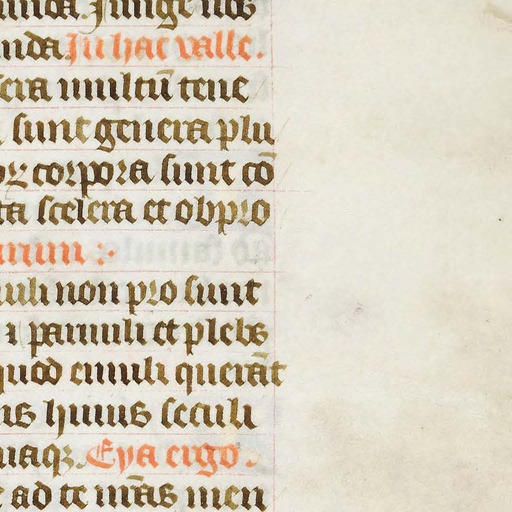 Iunge nos
nda. In hac valle.
sera multū tene
sunt genera plu
oꝝ corpora sunt cō
ta scelera et obpro
arum :·
uili non pro sunt
i paruuli et plebs
quod emuli querāt
us huius seculi
maqꝫ. Eya ergo.
e ad te mr̄as men